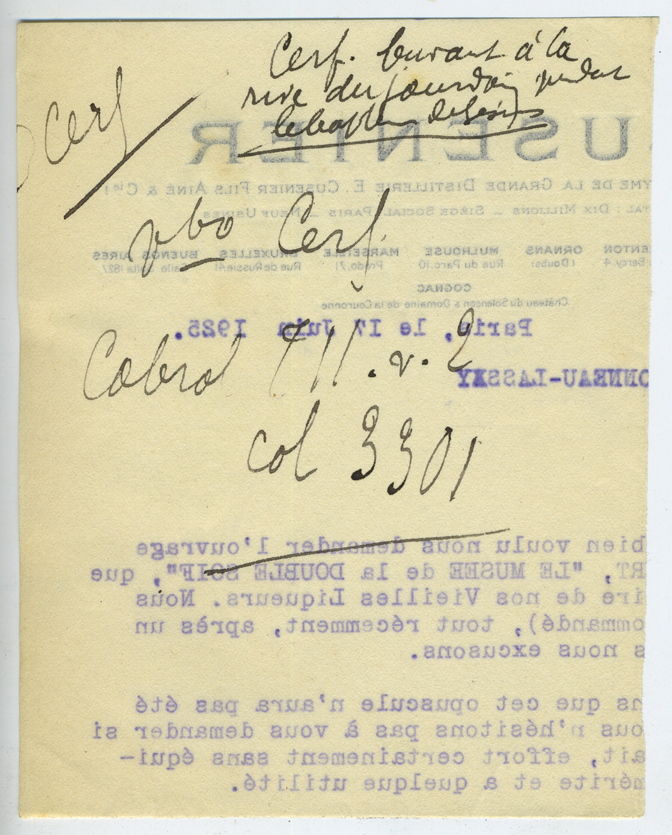 Cerf. buvant à la
rive du jourdain pendant
le baptême de Jésus
Cerf
USENIER
YME DE LA GRANDE DISTILLERIE E. CUSENIER FILS AINÉ & Cie
AL: DIX MILLIONS — SIÈGE SOCIAL: PARIS — NEUF USINES
ENTON ORNANS MULHOUSE MARSEILLE BRUXELLES BUENOS-AIRES
Bercy. 4 (Doubs) Rue du Parc. 10 Prado. 71 Rue de Russie. 41
COGNAC
Château du Solençon & Domaine de la Couronne
vbo Cerf.
Paris, le 17 Juin 1925.
Cabrol T II. v. 2
ONNEAU-LASSAY
col 3301
bien voulu nous demander l'ouvrage
RT, "LE MUSEE de la DOUBLE SOIF", que
ire de nos Vieilles Liqueurs. Nous
ommandé), tout récemment, après un
s nous excusons.
ns que cet opuscule n'aura pas été
ous n'hésitons pas à vous demander si
ait, effort certainement sans équi-
mérite et a quelque utilité.